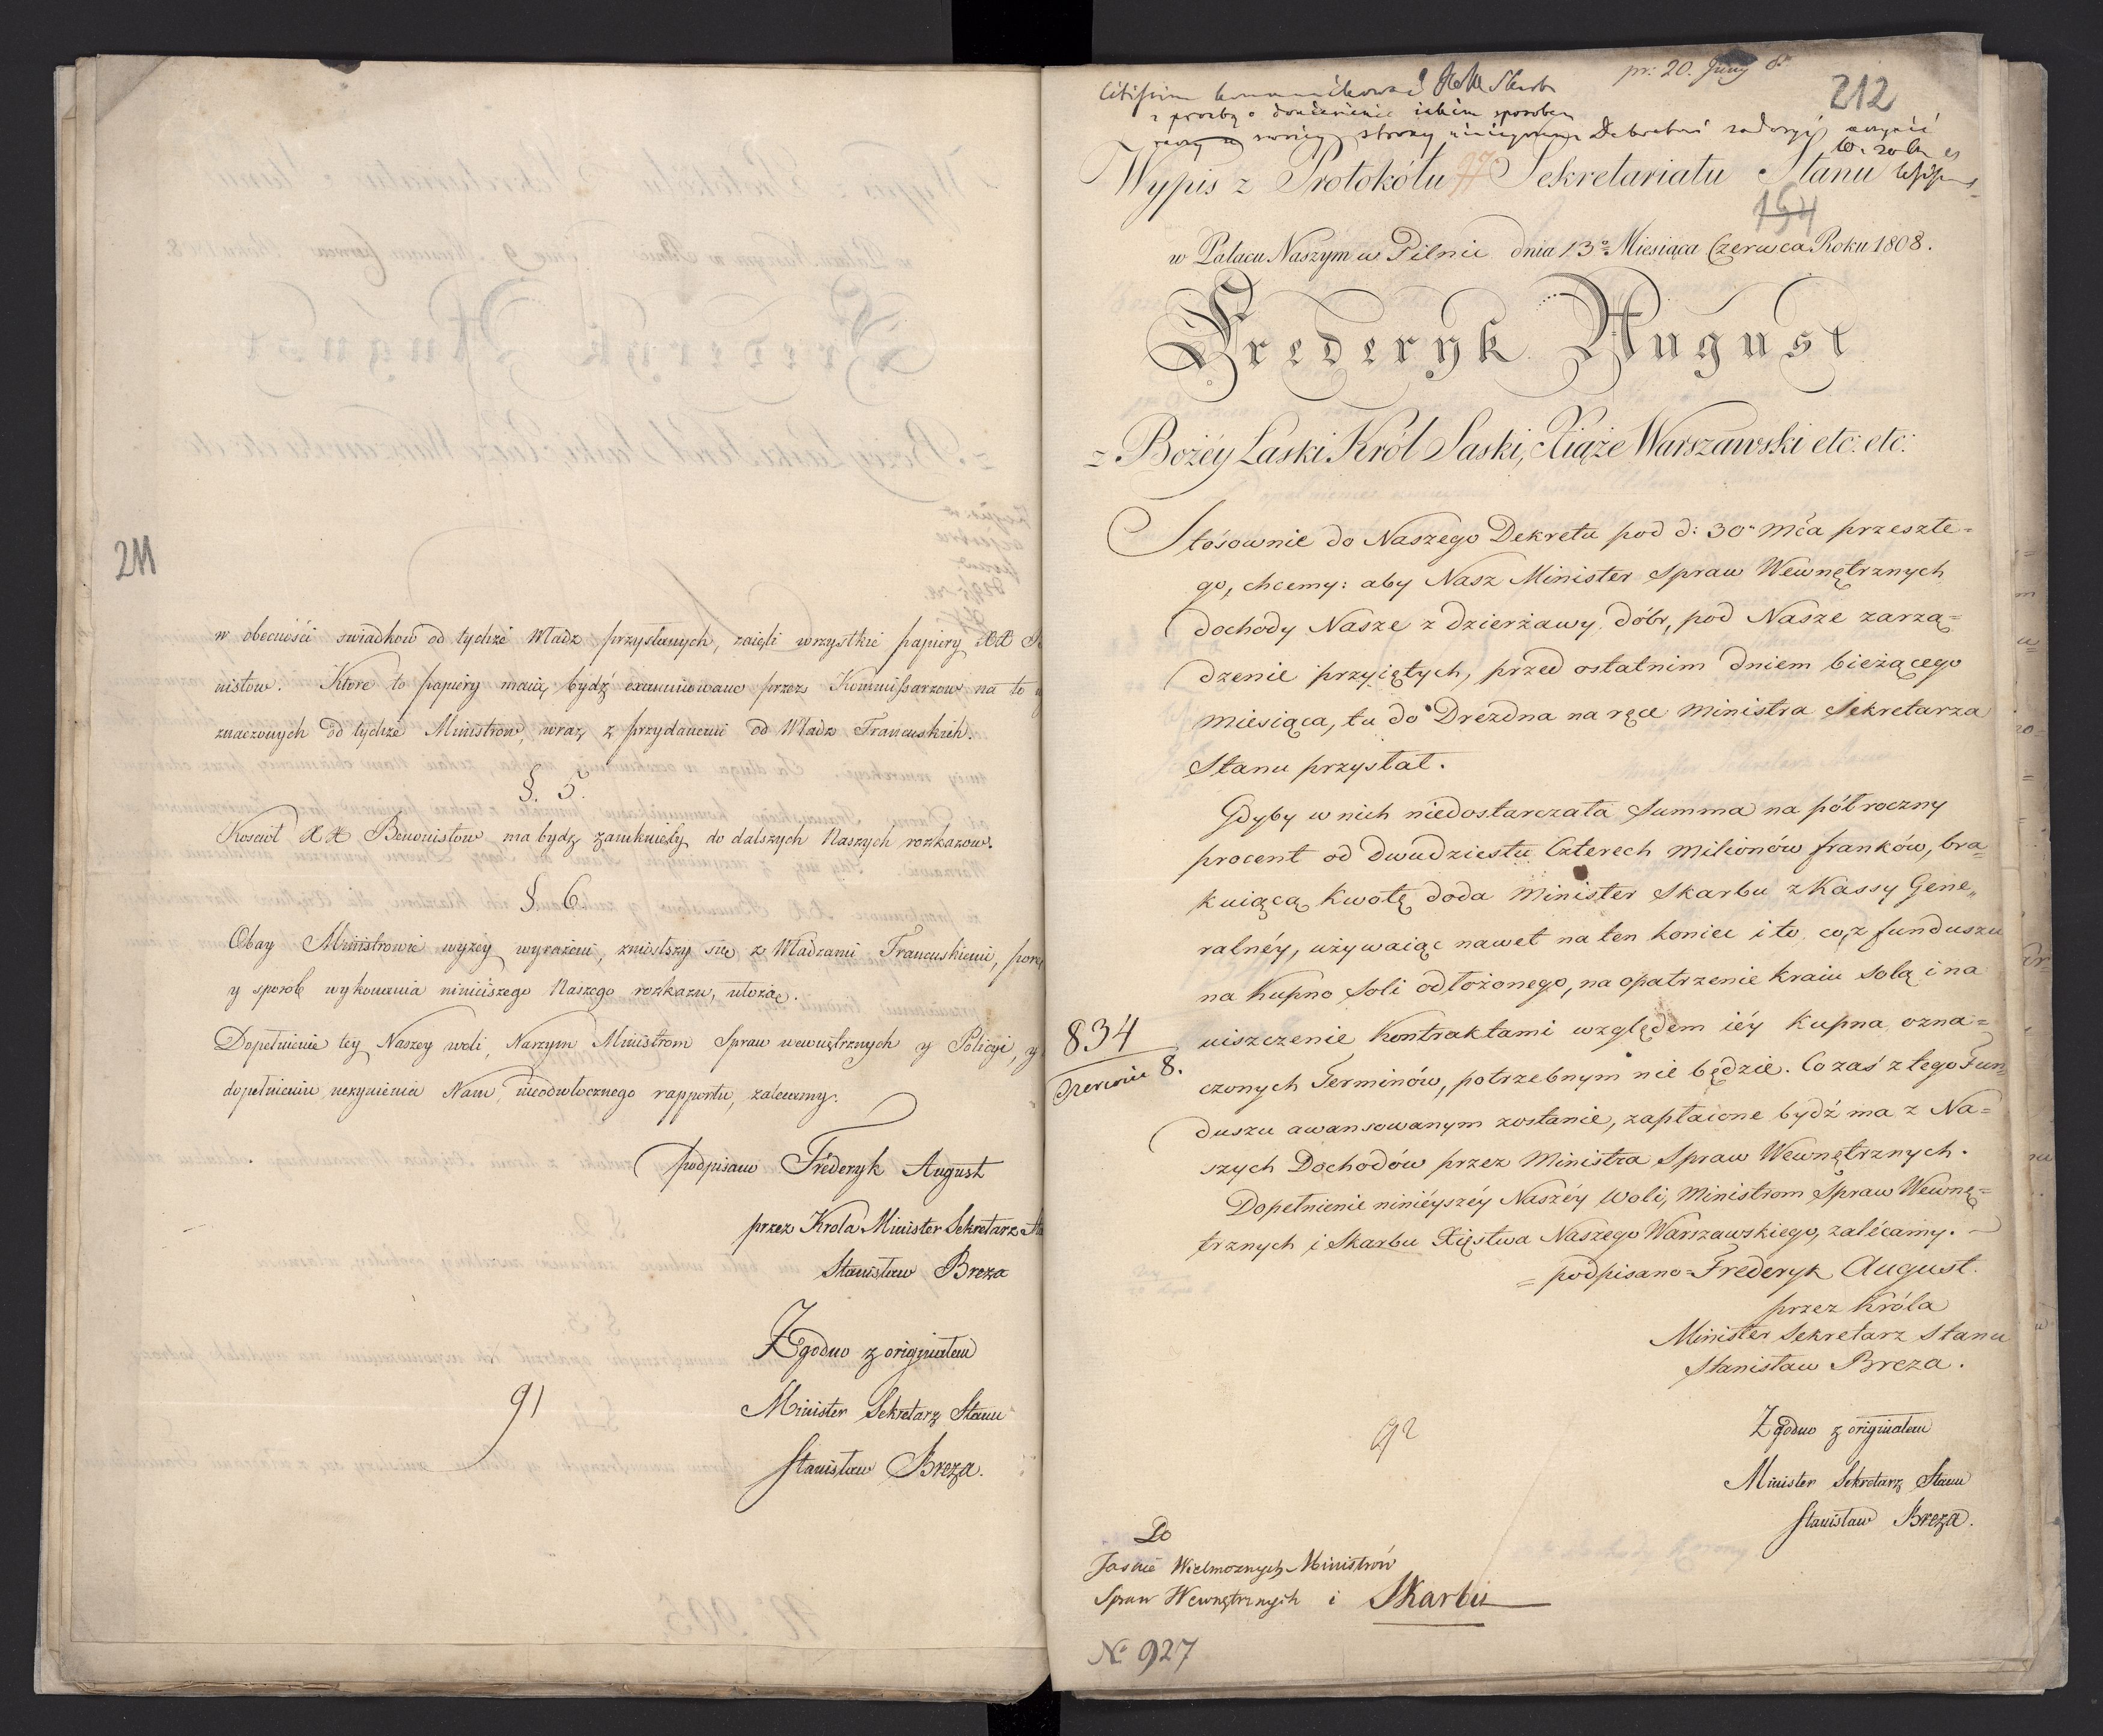 211
w obecności swiadkow od tychże Władz przysłanych, zaięli wszystkie papiery XX
nistow. Ktore to papiery maią bydź examinowane przez Kommissarzow na to
znaczonych od tychże Ministrow, wraz z przydanemi od Władz Francuskich.
§. 5.
Koscioł XX Benonistow ma bydz zamknięty do dalszych Naszych rozkazow.
§ 6.
Obay Ministrowie wyzey wyrażeni, zniosłszy się z Władzami Francuskiemi,
y sposób wykonania ninieiszego Naszego rozkazu, ułożą.
Dopełnienie tey Naszey woli, Naszym Ministrom Spraw wewnętrznych y Policyi, y
dopełnieniu uczynienia Nam nieodwłocznego rapportu, zalecamy.
podpisano Fréderyk August
przez Krola Minister Sekretarz
Stanisław Breza
Zgodno z originałem
Minister Sekretarz Stanu
Stanisław Breza.
91
pr: 20. Juny 8.
212
z prozbą o doniesienie iakim sposobem
swoiey strony Dekretowi zadosyć uczynić
Wypis z Protokółu Sekretariatu Stanu
154
w Pałacu Naszym w Pilnic dnia 13º Miesiąca Czerwca Roku 1808.
Frederyk August
z Bożéy Łaski Król Saski, Xiąże Warszawski etc: etc:
Stósownie do Naszego Dekretu pod d: 30º Mca przeszłe=
go, chcemy: aby Nasz Minister Spraw Wewnętrznych
dochody Nasze z dzierżawy dóbr, pod Nasze zarzą=
dzenie przyiętych, przed ostatnim dniem bieżącego
miesiąca, tu do Drezdna na ręce Ministra Sekretarza
Stanu przysłał.
Gdyby w nich niedostarczała Summa na półroczny
procent od dwudziestu Czterech milionów franków, bra=
kuiącą kwotę doda Minister Skarbu z Kassy Gene„
ralnéy, używaiąc nawet na ten koniec i to, co z funduszu
na kupno Soli odłożonego, na opatrzenie kraiu Solą i na
uiszczenie kontraktami względem iéy kupna ozna=
czonych Terminów, potrzebnym nie będzie. Co zaś z tego Fun=
duszu awansowanym zostanie, zapłacone bydź ma z Na=
szych Dochodów przez Ministra Spraw Wewnętrznych.
Dopełnienie ninieyszéy Naszéy Woli, Ministrom Spraw Wewnę=
trznych i Skarbu Xięstwa Naszego Warszawskiego, zalécamy.
834
Czerwca 8.
= podpisano = Frederyk August.
przez Króla
Minister Sekretarz Stanu
Stanisław Breza.
Zgodno z originałem
Minister Sekretarz Stanu
Stanisław Breza.
92
Do
Jaśnie Wielmoznych Ministrów
Spraw Wewnętrznych i Skarbu
No 927